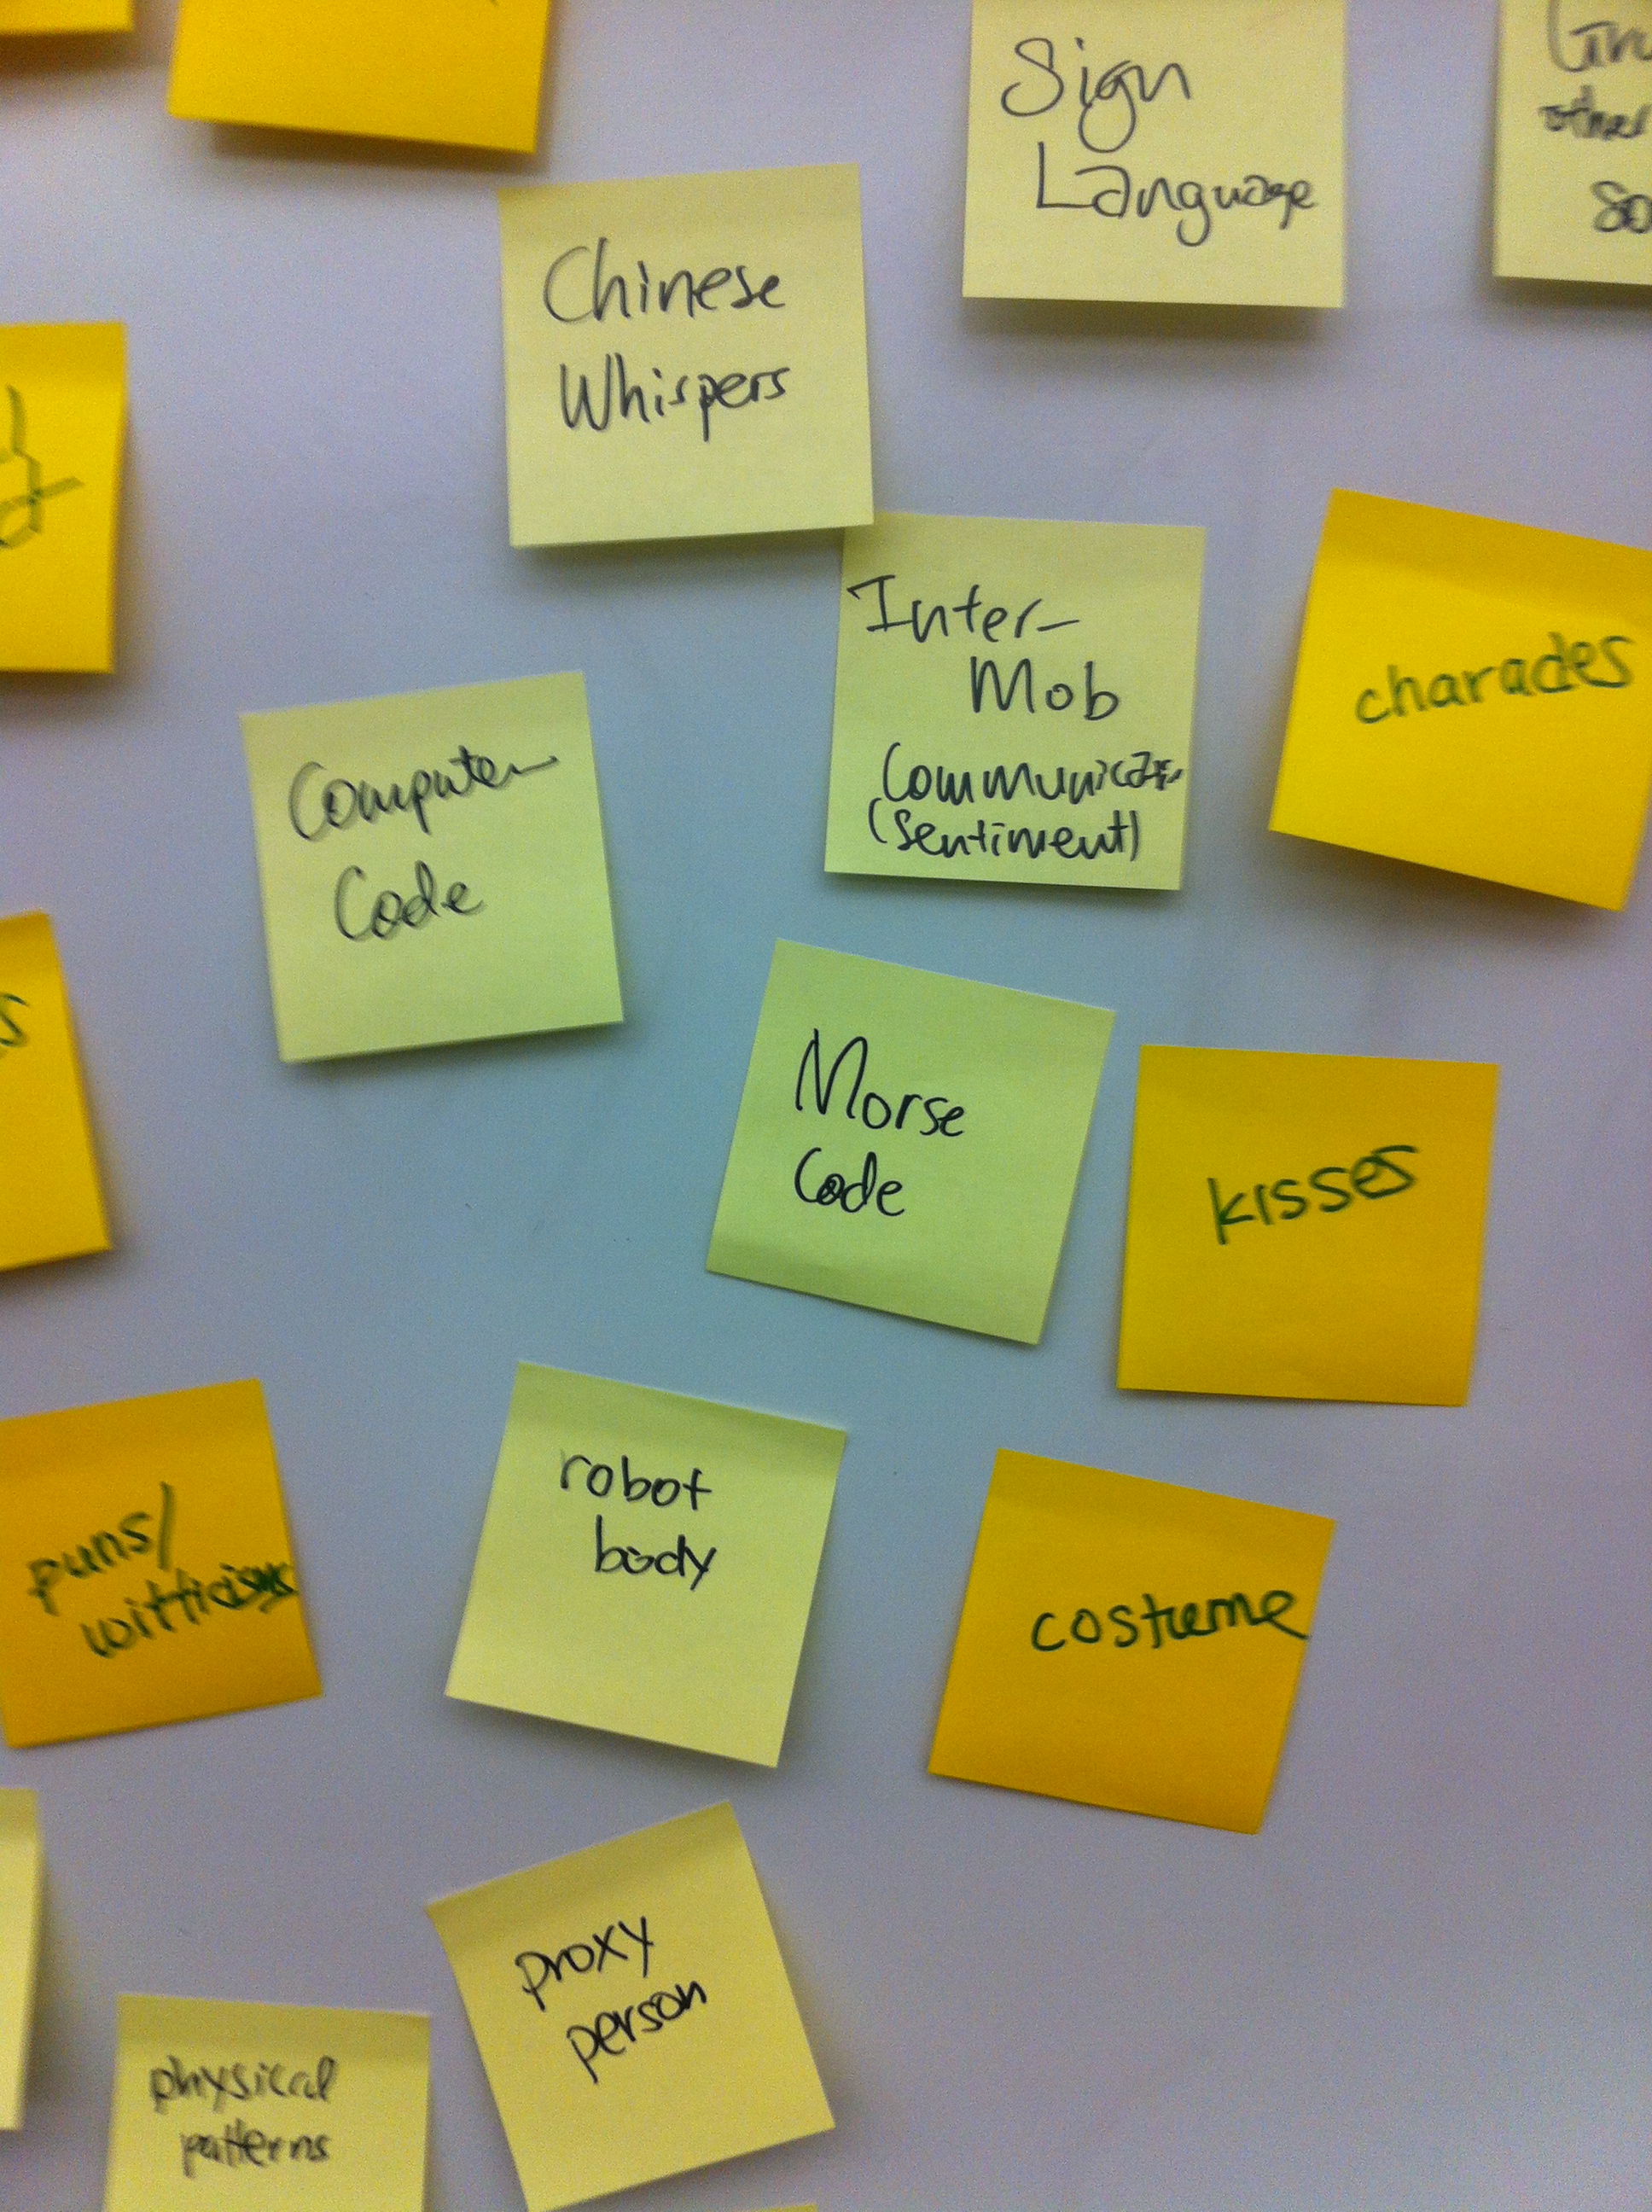 Sign
Language
other
So
Chinese
Whispers
Inter-
Mob
(sentiment)
charades
Computer
Code
Morse
Code
kisses
puns/
witticisms
robot
body
costume
proxy
person
physical
patterns